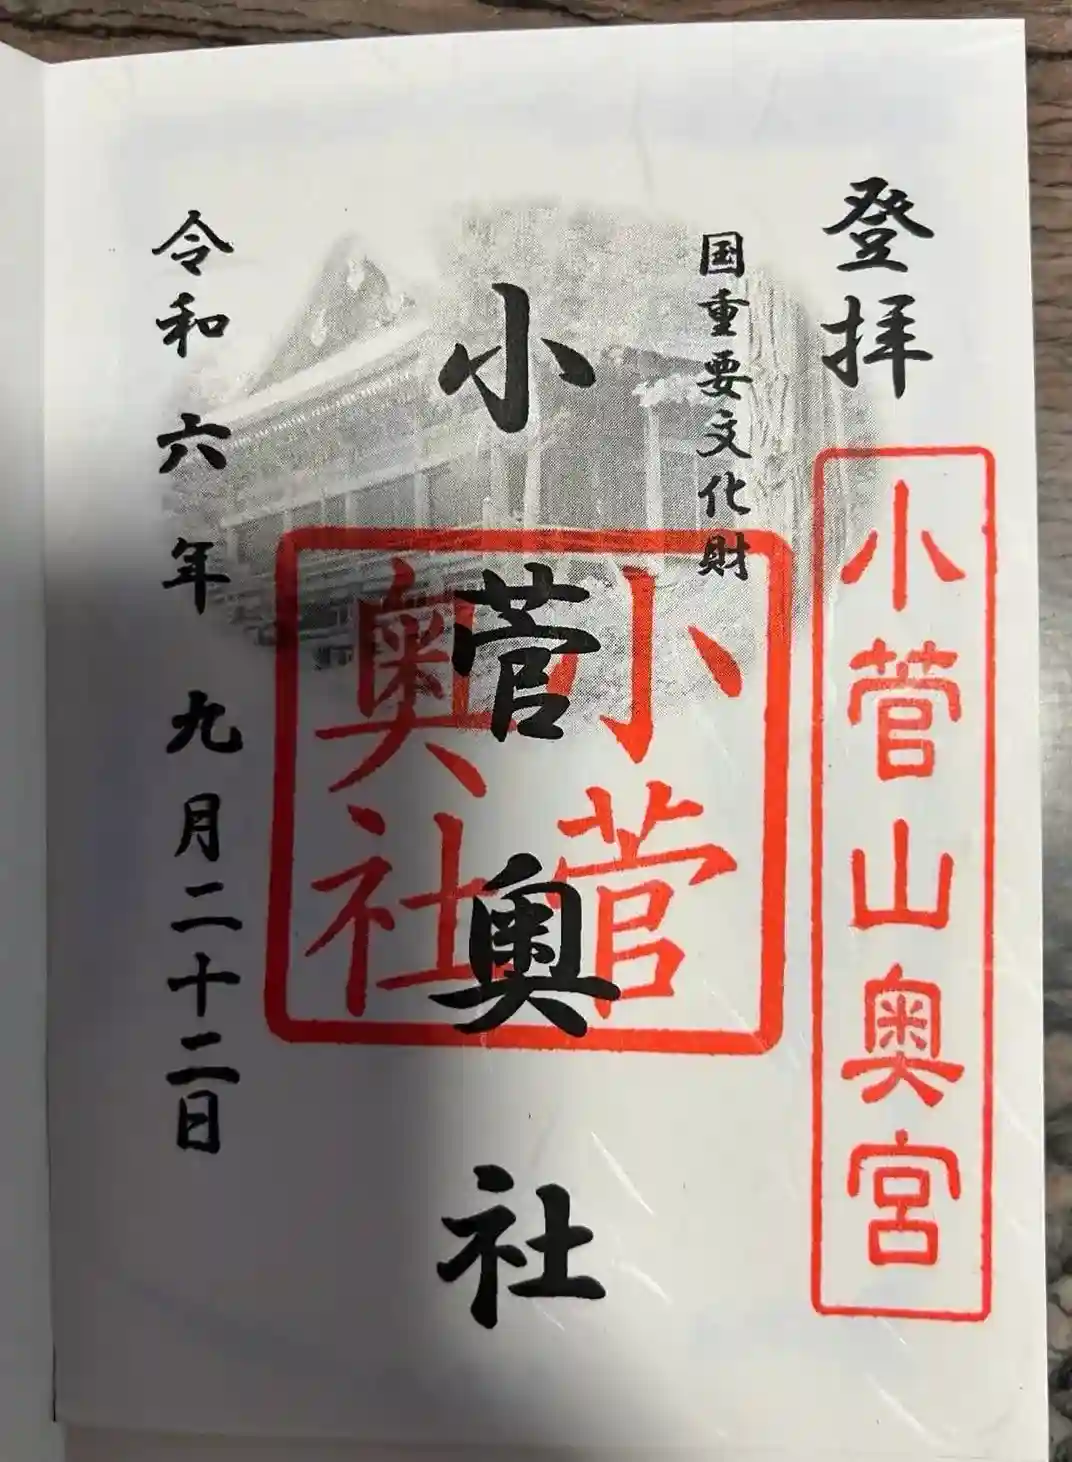 登拝
小菅山奥宮
国重要文化財
小菅奥社
小菅
奥社
令和六年九月二十二日